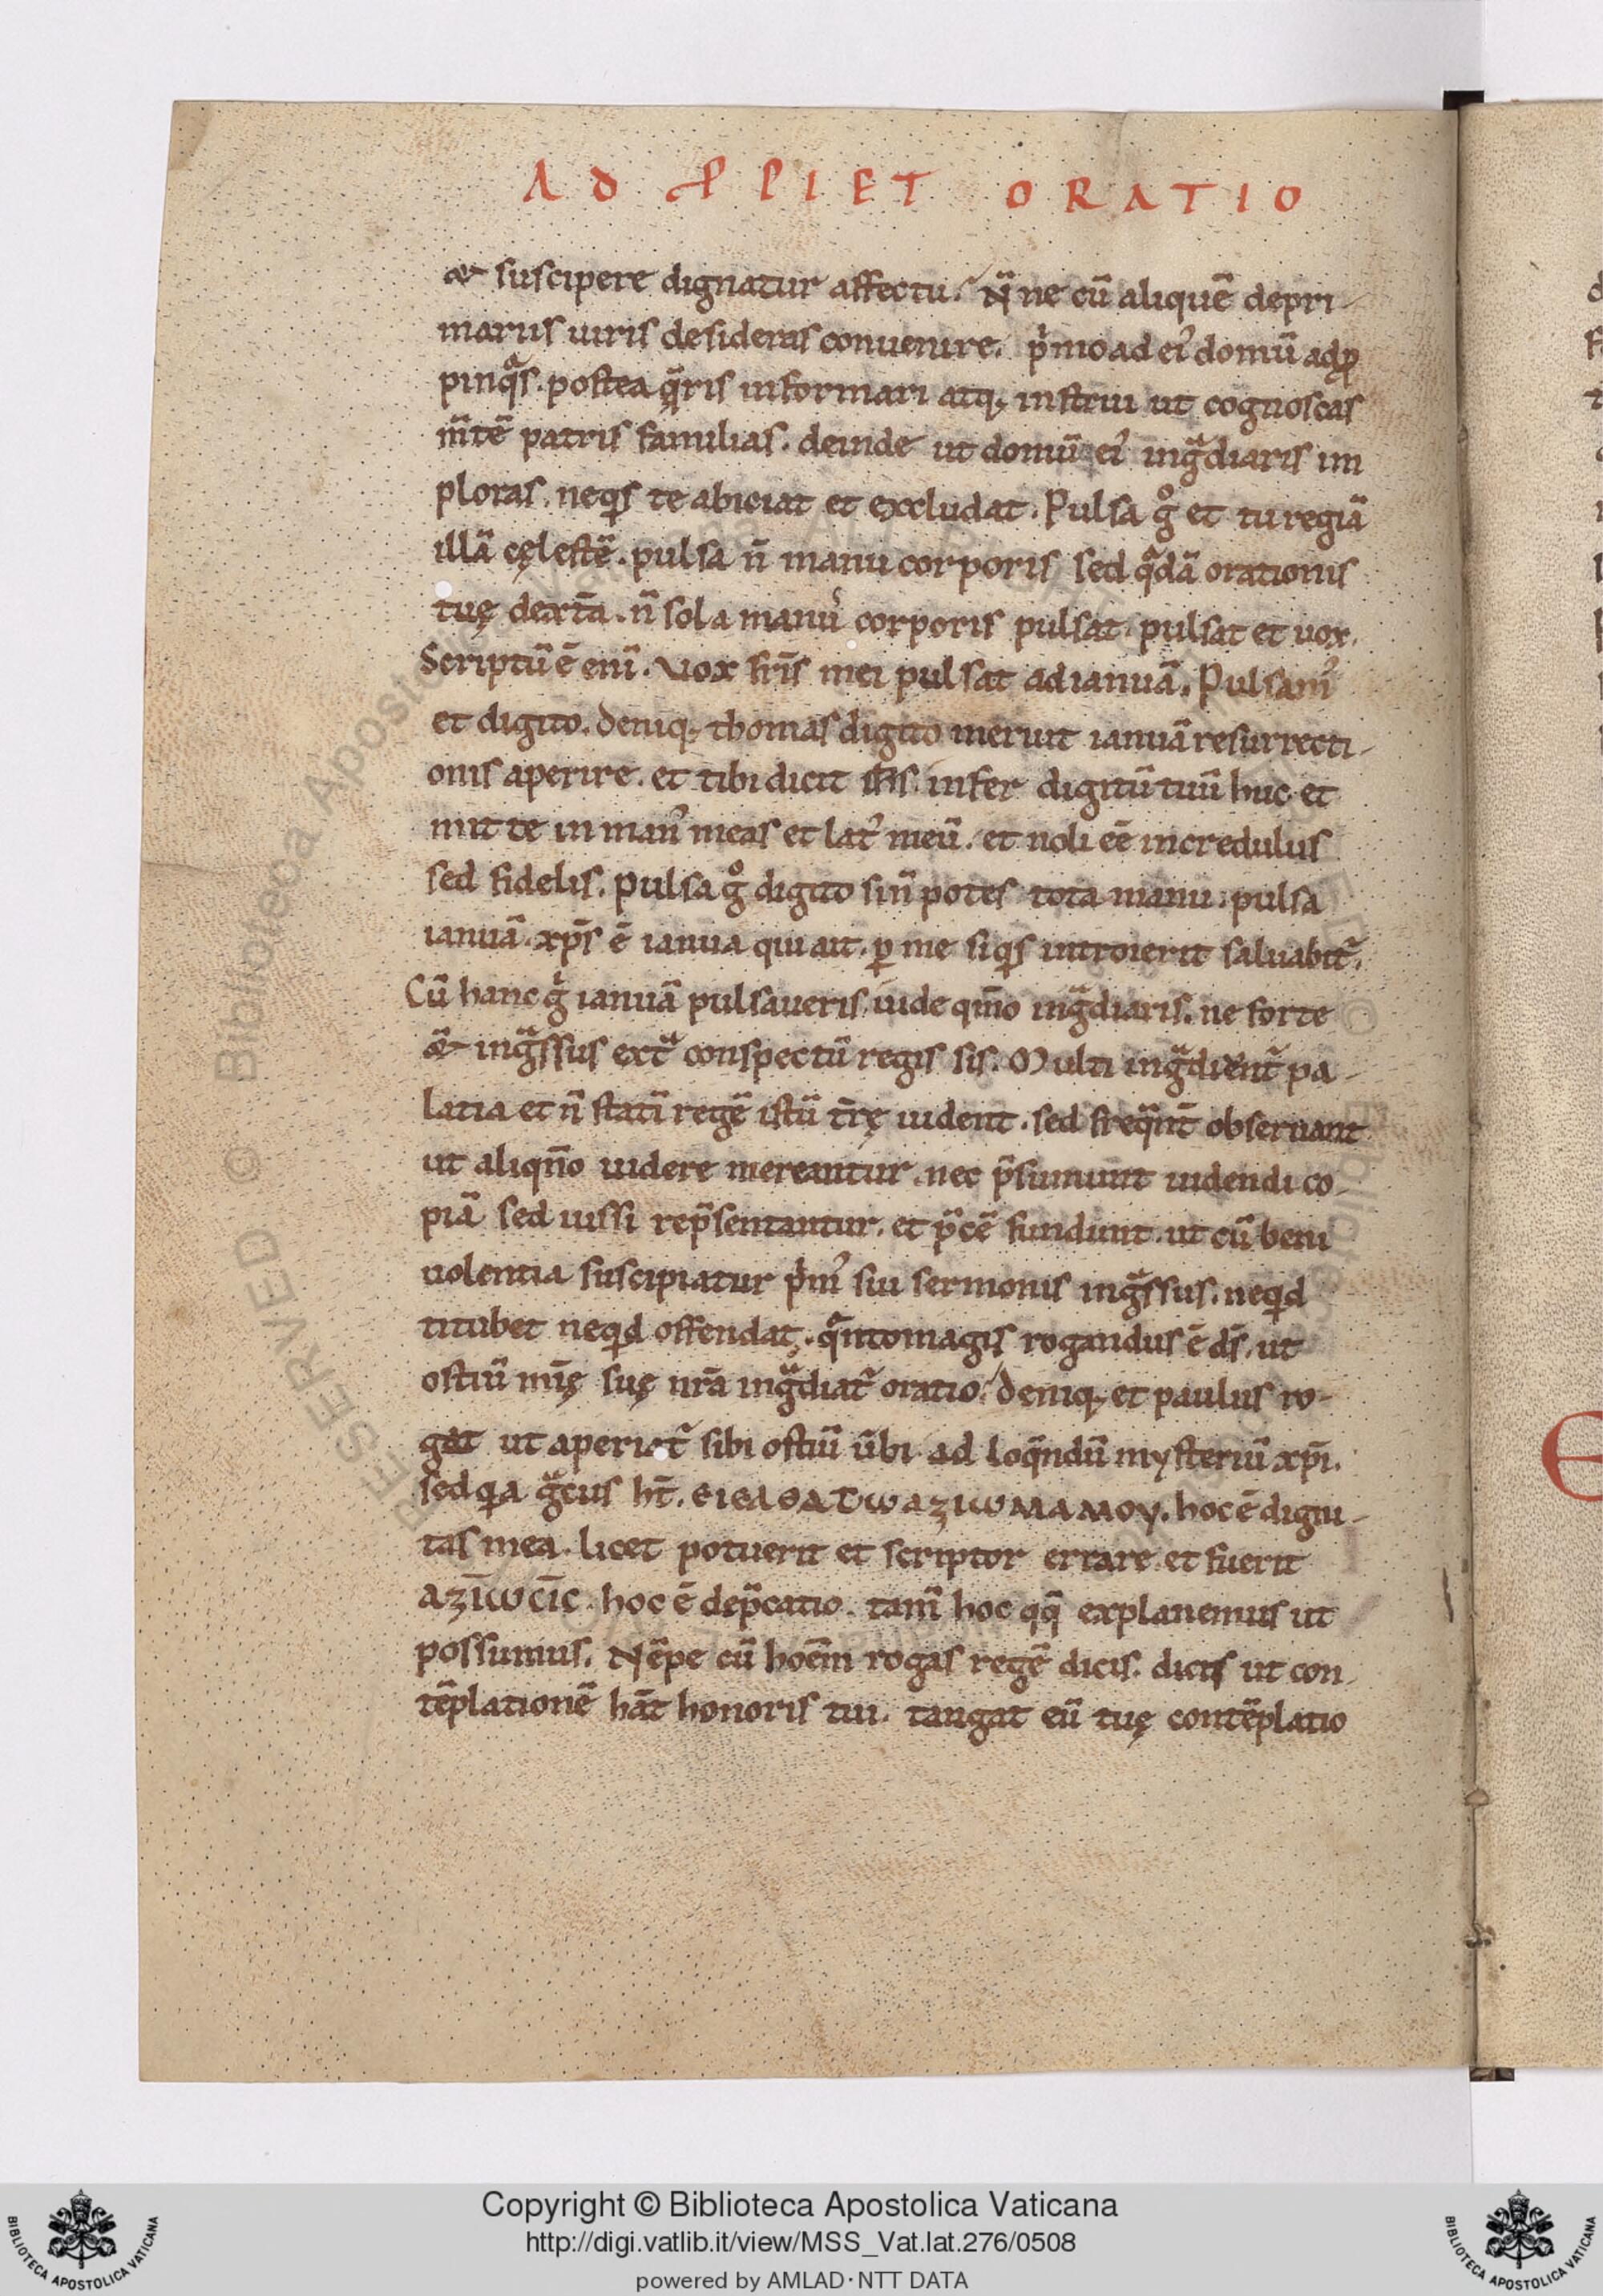 AD ꝓPIET ORATIO
& suscipere dignatur affectu. Nͣ ne cū aliquē depri-
mariis uiris desideras conuenire. pͥmo ad eiꝰ domū adꝓ
pinqͣs. postea qͣris informari atq; instrui ut cognoscas
m̄tē patris familias. deinde ut domū eiꝰ ingͣdiaris im
ploras. neqͥs te abiciat et excludat. Pulsa gͦ et tu regiā
illā cęlestē. pulsa n̄ manu corporis sed qͣdā orationis
tuę dext̄a. n̄ sola manuꝰ corporis pulsat. pulsat et uox.
Scriptū ē eni̅. Vox fr̄is mei pulsat ad ianuā. Pulsamꝰ
et digito. Deniq; thomas digito meruit ianuā resurrecti-
onis aperire. et tibi dicit ih̄s. infer digitū tuū huc. et
mitte in manꝰ meas et latꝰ meū. et noli eē incredulus
sed fidelis. Pulsa gͦ digito si n̄ potes tota manu. pulsa
ianuā. xp̄s ē ianua qui ait. ꝑ me siqͥs introierit saluabit᷑.
Cū hanc gͦ ianuā pulsaueris, uide qm̄o ingͣdiaris. ne forte
& ingͣssus extͣ conspectū regis sis. Multi ingͣdient᷑ pa-
latia et n̄ stati̅ regē istū t̄rę uident. sed freq̄nt̄ obseruant
ut aliqn̄o uidere mereantur. nec p̄sumunt uidendi co-
piā sed iussi rep̄sentantur. et p̄cē fundunt. ut cū beni
uolentia suscipiatur pͥmꝰ sui sermonis ingͣssus. neqͥd
titubet neqͥd offendat. qͣnto magis rogandus ē d̄s. ut
ostiū mīę suę nr̄a ingͣdiat᷑ oratio. Deniq; et paulus ro-
gat ut aperiat᷑ sibi ostiū ūbi ad loq̄ndū mysteriū xp̄i.
sed qͥa gͣcus ht̄. ειελθατω αζιωμα μου. hoc ē digni-
tas mea. licet potuerit et scriptor errare. et fuerit
αζιωcιc. hoc ē dep̄catio. tam̄ hoc qq̄ explanemus ut
possumus. Nēpe cū hoēm rogas regē dicis. dicis ut con
tēplationē hāt honoris tui. tangat eū tuę contēplatio
Copyright © Biblioteca Apostolica Vaticana
http://digi.vatlib.it/view/MSS_Vat.lat.276/0508
powered by AMLAD·NTT DATA
BIBLIOTECA APOSTOLICA VATICANA
BIBLIOTECA APOSTOLICA VATICANA